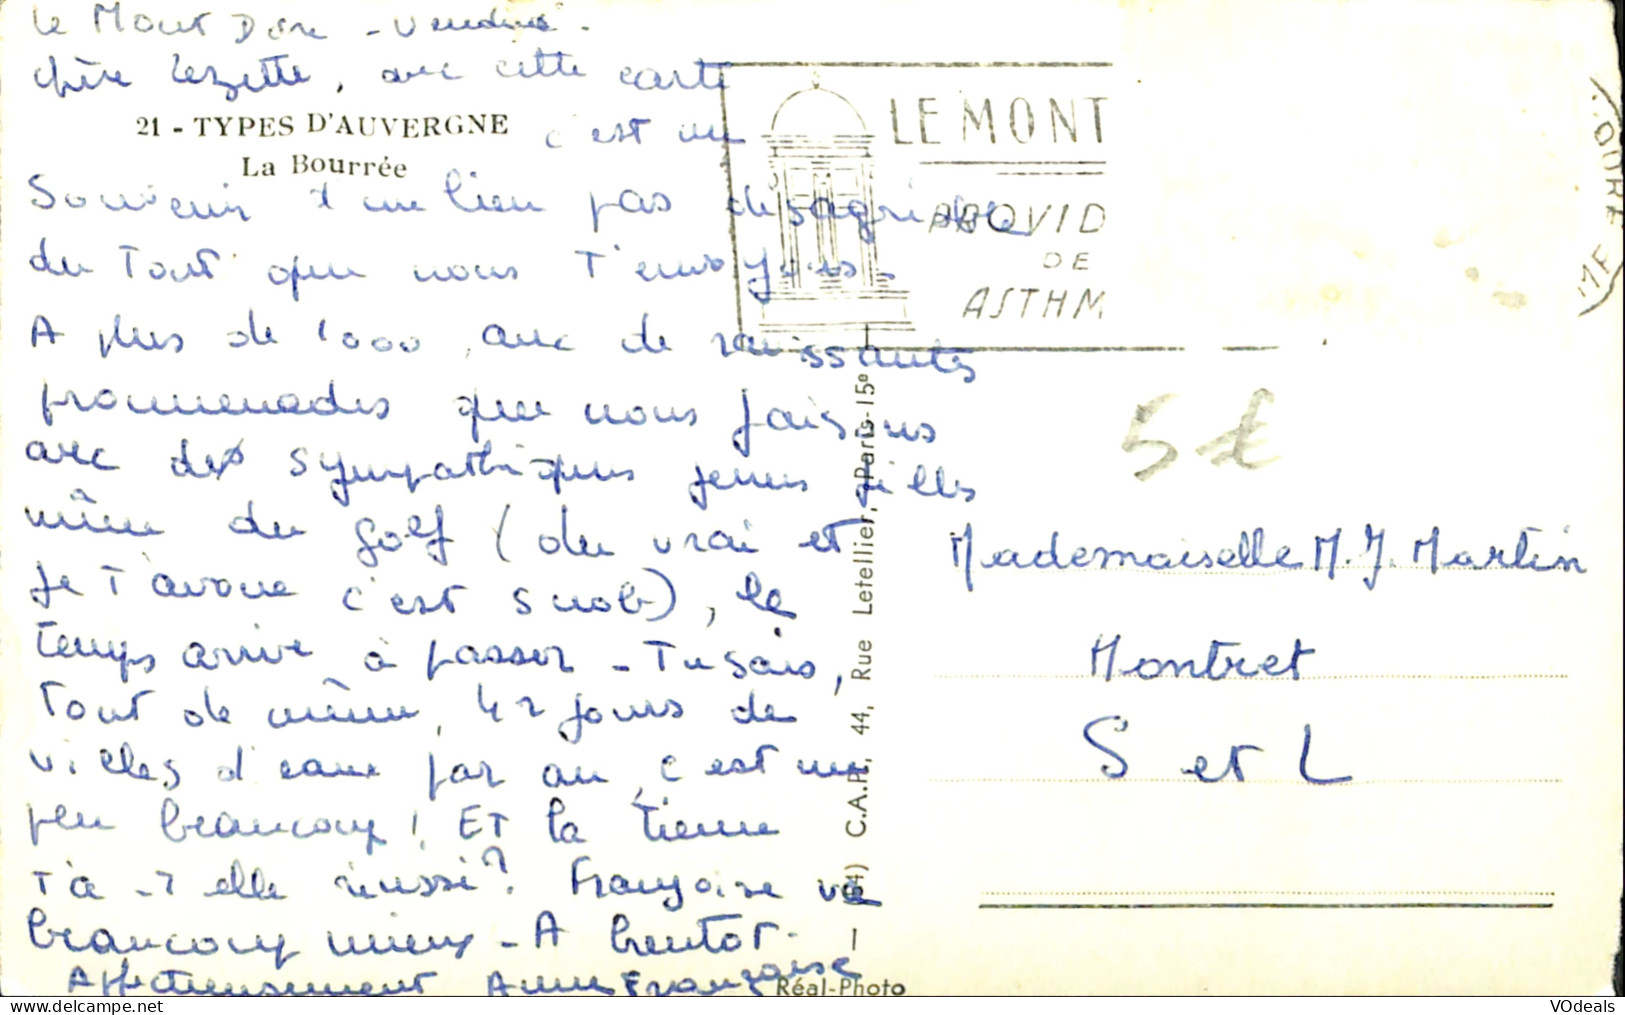 Le Mont Dore - Vendredi -
Chère Zezette, avec cette carte
21 - TYPES D'AUVERGNE
La Bourrée
c'est un
Souvenir d'un lieu pas désagréable
du Tout que nous T'envoyons.
A plus de 1000, avec de ravissantes
promenades que nous faisons
avec des sympathiques jeunes filles
même du golf (du vrai et
je T'avoue c'est snob), le
temps arrive à passer - Tu sais,
Tout de même, 42 jours de
villes d'eaux par an, c'est un
peu beaucoup! ET la Tienne
T'a-T elle réussi? Françoise va
beaucoup mieux - A bientôt -
Affectueusement Anne Françoise
LE MONT
PROVID
DE
ASTHM
DORE
C.A.P., 44, Rue Letellier, Paris-15e
Réal-Photo
5 €
Mademoiselle M. J. Martin
Montret
S et L
delcampe.net
VOdeals